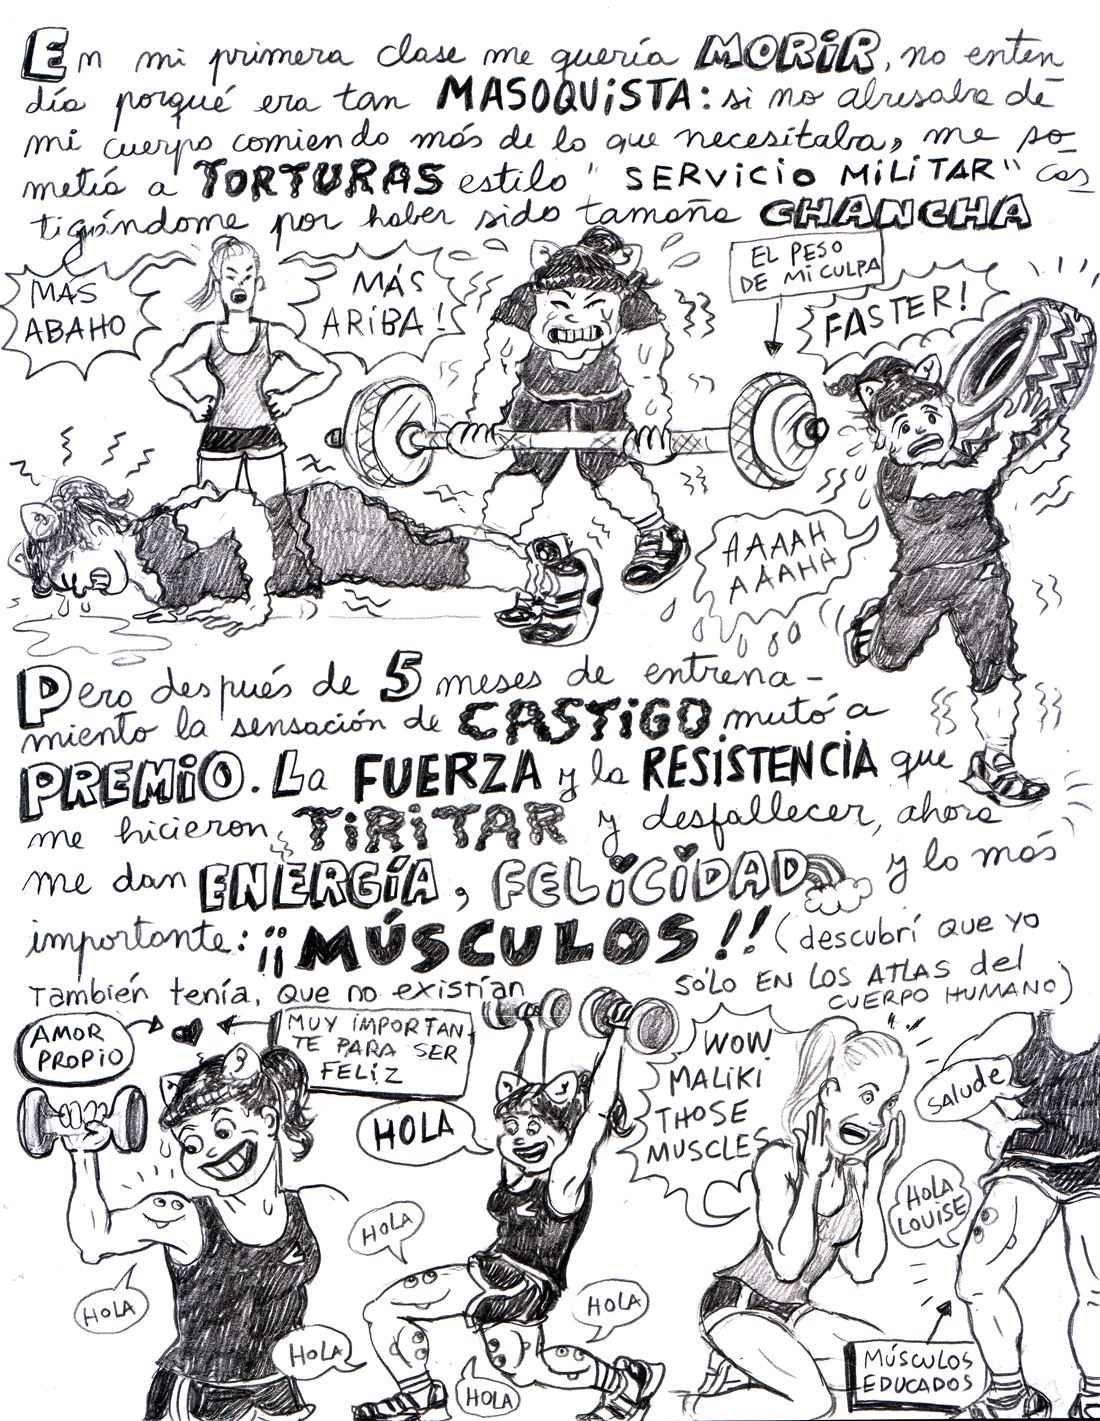 En mi primera clase me quería MORIR, no enten
día porqué era tan MASOQUISTA: si no abusaba de
mi cuerpo comiendo más de lo que necesitaba, me so_
metía a TORTURAS estilo "SERVICIO MILITAR" cas
tigándome por haber sido tamaña CHANCHA
MAS
ABAHO
MÁS
ARIBA!
EL PESO
DE MI CULPA
FASTER!
AAAAH
AAAAHA
Pero después de 5 meses de entrena-
miento la sensación de CASTIGO mutó a
PREMIO. La FUERZA y la RESISTENCIA que
me hicieron TIRITAR y desfallecer, ahora
me dan ENERGÍA, FELICIDAD y lo más
importante: ¡¡MÚSCULOS!! (descubrí que yo
También tenía, que no existían SÓLO EN LOS ATLAS del
CUERPO HUMANO)
AMOR
PROPIO
MUY IMPORTAN_
TE PARA SER
FELIZ
HOLA
HOLA
HOLA
HOLA
HOLA
HOLA
WOW
MALIKI
THOSE
MUSCLES
Salude
HOLA
LOUISE
MÚSCULOS
EDUCADOS